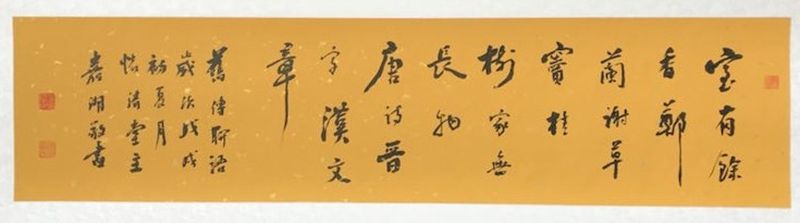 室有餘
香鄭
蘭謝草
竇桂
樹家無
長物
唐詩晉
字漢文
章
舊傳聯語
歲次戊戌
初夏月
堂主
湖敬書